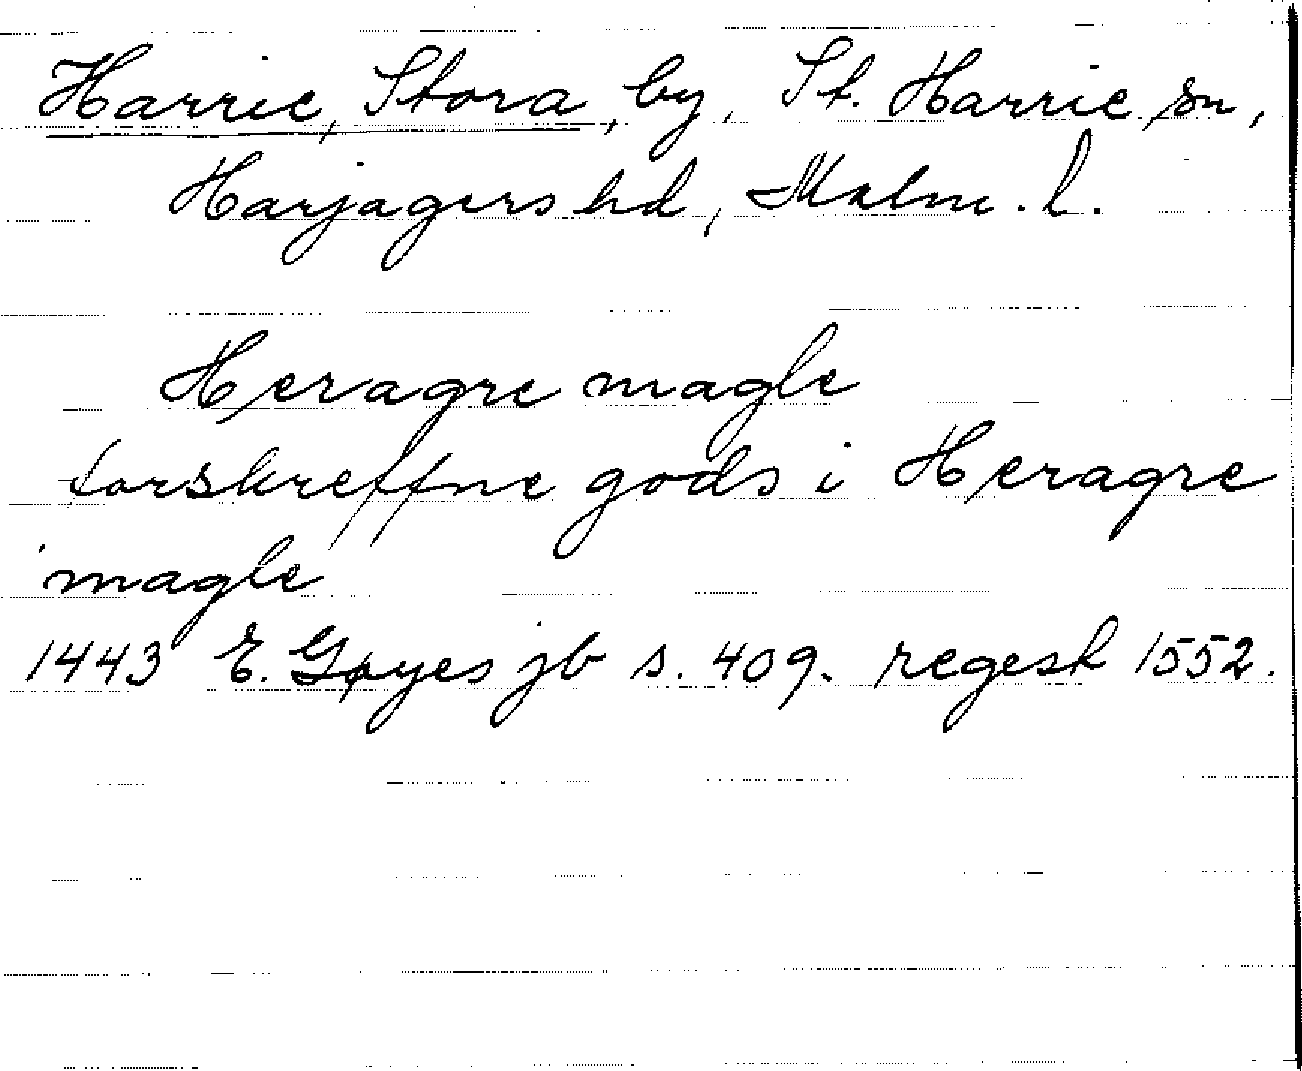 Harrie, Stora, by, St. Harrie sn,
Harjagers hd, Malm. l.
Heragre magle
forskreffne gods i Heragre
magle
1443 E. Gøyes jb s. 409. regest 1552.